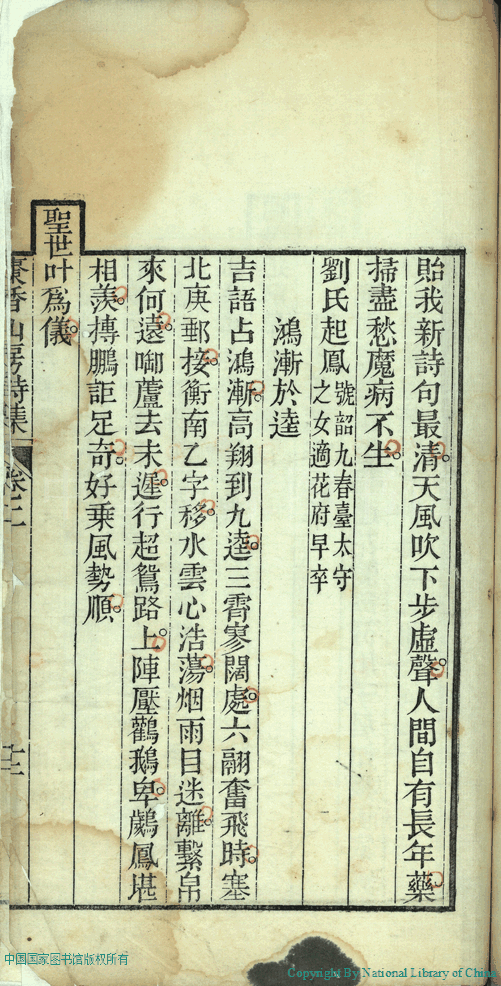 貽我新詩句最清天風吹下步虛聲人間自有長年藥
掃盡愁魔病不生
劉氏起鳳號韶九春臺太守之女適花府早卒
鴻漸於逵
吉語占鴻漸高翔到九逵三霄寥闊處六翮奮飛時塞
北庚郵接衡南乙字移水雲心浩蕩烟雨目迷離繫帛
來何遠啣蘆去未遲行超鴛路上陣壓鸛鵝卑鸑鳳堪
相羨摶鵬詎足奇好乘風勢順
聖世叶爲儀
香山房詩集 卷二
中国国家图书馆版权所有
Copyright By National Library of China